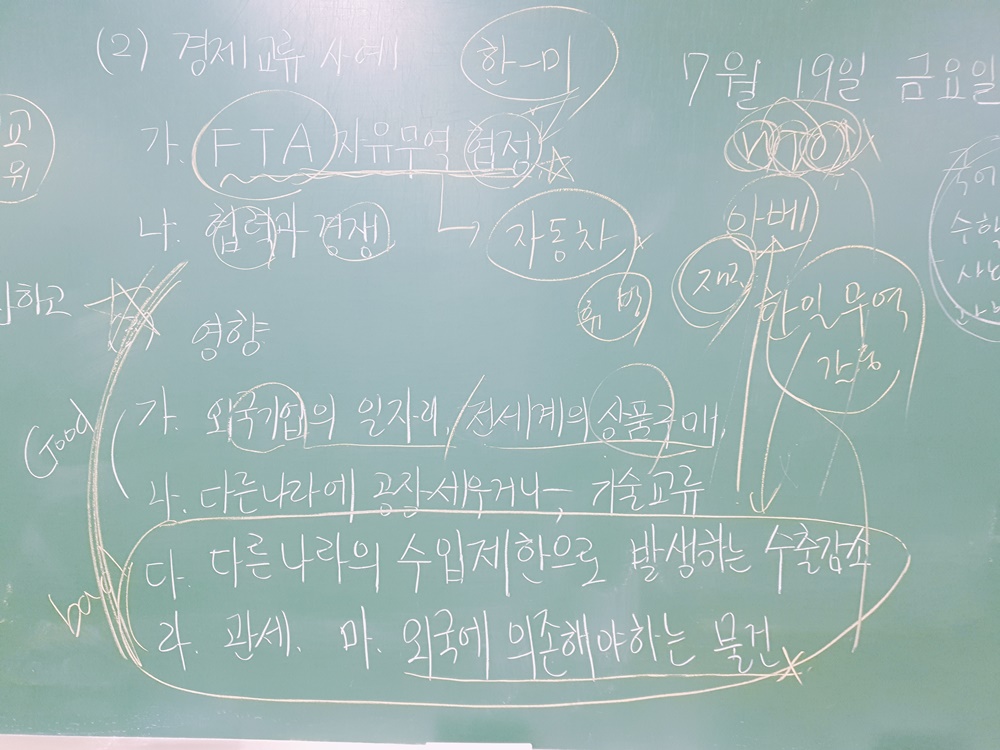 (2) 경제교류 사례
한-미
가. FTA 자유무역 협정
나. 협력과 경쟁
자동차
영향
Good
가. 외국기업의 일자리, 전세계의 상품구매,
나. 다른나라에 공장세우거나, 기술교류
bad
다. 다른나라의 수입제한으로 발생하는 수출감소
라. 관세. 마. 외국에 의존해야하는 물건
7월 19일 금요일
WTO
아베
한일무역
갈등
국어
수학